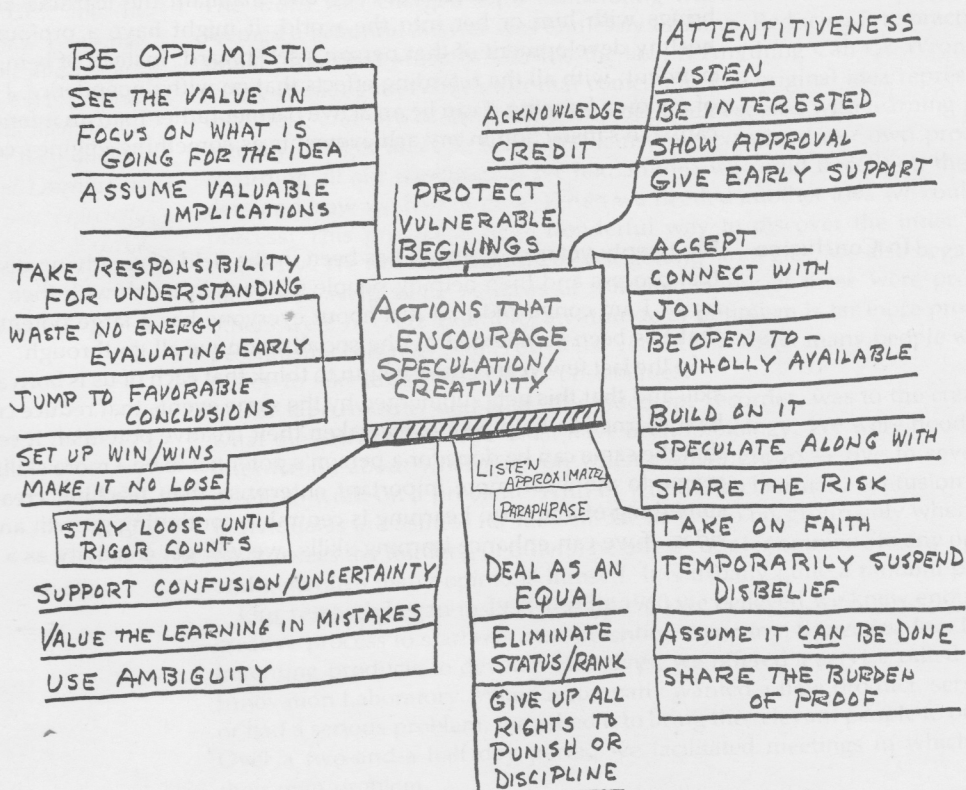 BE OPTIMISTIC
SEE THE VALUE IN
FOCUS ON WHAT IS
GOING FOR THE IDEA
ASSUME VALUABLE
IMPLICATIONS
TAKE RESPONSIBILITY
FOR UNDERSTANDING
WASTE NO ENERGY
EVALUATING EARLY
JUMP TO FAVORABLE
CONCLUSIONS
SET UP WIN/WINS
MAKE IT NO LOSE
STAY LOOSE UNTIL
RIGOR COUNTS
SUPPORT CONFUSION/UNCERTAINTY
VALUE THE LEARNING IN MISTAKES
USE AMBIGUITY
ACKNOWLEDGE
CREDIT
PROTECT
VULNERABLE
BEGININGS
ACTIONS THAT
ENCOURAGE
SPECULATION/
CREATIVITY
LISTEN
APPROXIMATE
PARAPHRASE
DEAL AS AN
EQUAL
ELIMINATE
STATUS/RANK
GIVE UP ALL
RIGHTS TO
PUNISH OR
DISCIPLINE
ATTENTITIVENESS
LISTEN
BE INTERESTED
SHOW APPROVAL
GIVE EARLY SUPPORT
ACCEPT
CONNECT WITH
JOIN
BE OPEN TO
WHOLLY AVAILABLE
BUILD ON IT
SPECULATE ALONG WITH
SHARE THE RISK
TAKE ON FAITH
TEMPORARILY SUSPEND
DISBELIEF
ASSUME IT CAN BE DONE
SHARE THE BURDEN
OF PROOF